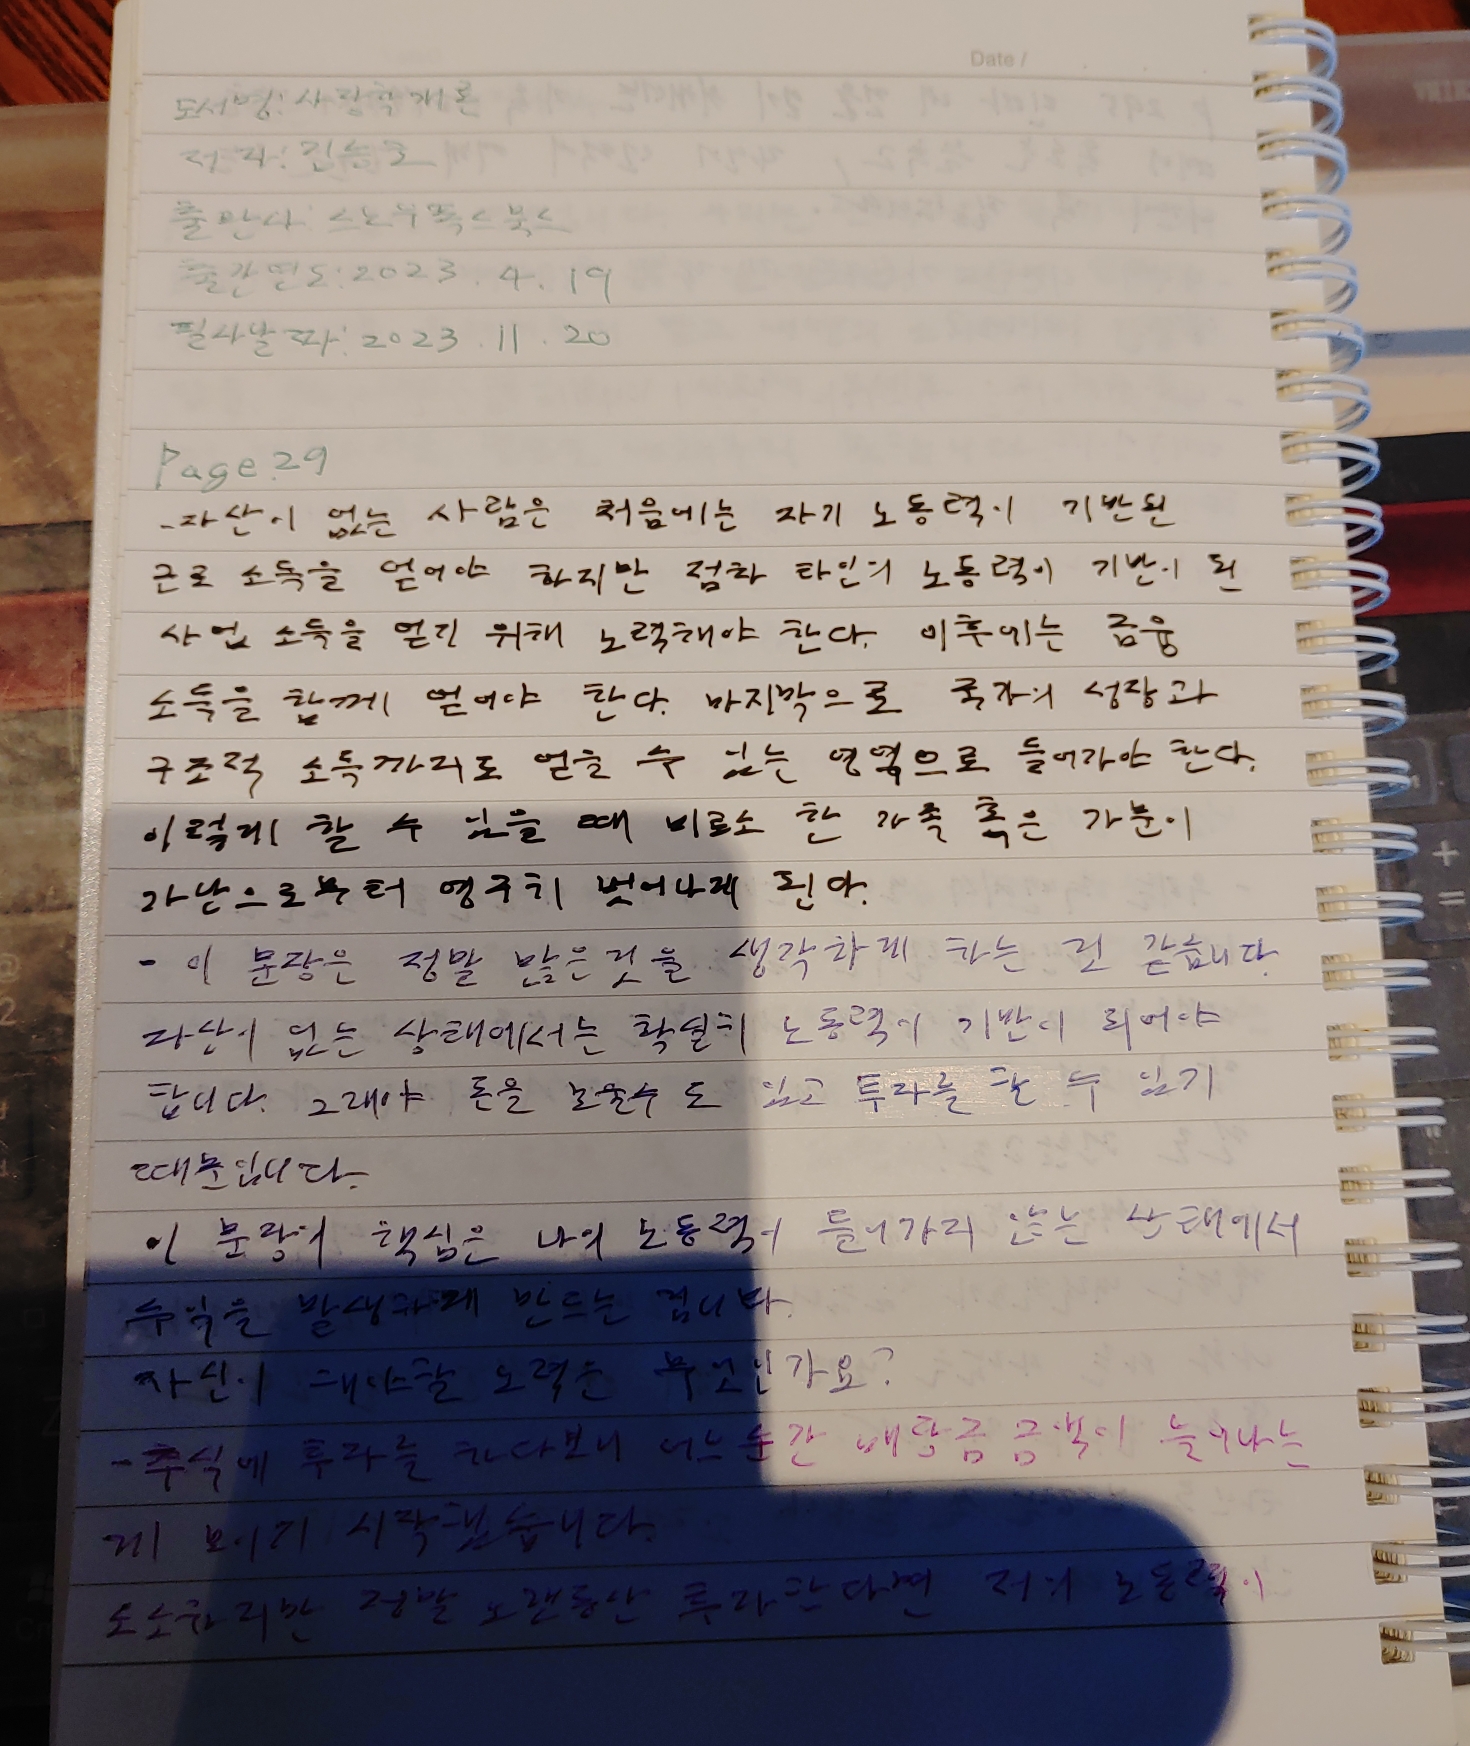 Date /
도서명: 사장학개론
저자: 김승호
출판사: 스노우폭스북스
출간연도: 2023. 4. 19
필사날짜: 2023. 11. 20
Page. 29
- 자산이 없는 사람은 처음에는 자기 노동력이 기반된
근로 소득을 얻어야 하지만 점차 타인의 노동력이 기반이 된
사업 소득을 얻기 위해 노력해야 한다. 이후에는 금융
소득을 함께 얻어야 한다. 마지막으로 국가의 성장과
구조적 소득까지도 얻을 수 있는 영역으로 들어가야 한다.
이렇게 할 수 있을 때 비로소 한 가족 혹은 가문이
가난으로부터 영구히 벗어나게 된다.
- 이 문장은 정말 많은것을 생각하게 하는 것 같습니다.
자산이 없는 상태에서는 확실히 노동력이 기반이 되어야
합니다. 그래야 돈을 모을수도 있고 투자를 할 수 있기
때문입니다.
이 문장의 핵심은 나의 노동력이 들어가지 않는 상태에서
수익을 발생하게 만드는 겁니다.
자신이 해야할 노력은 무엇인가요?
- 주식에 투자를 하다보니 어느순간 배당금 금액이 늘어나는
게 보이기 시작했습니다.
소소하지만 정말 오랜동안 투자한다면 저의 노동력이